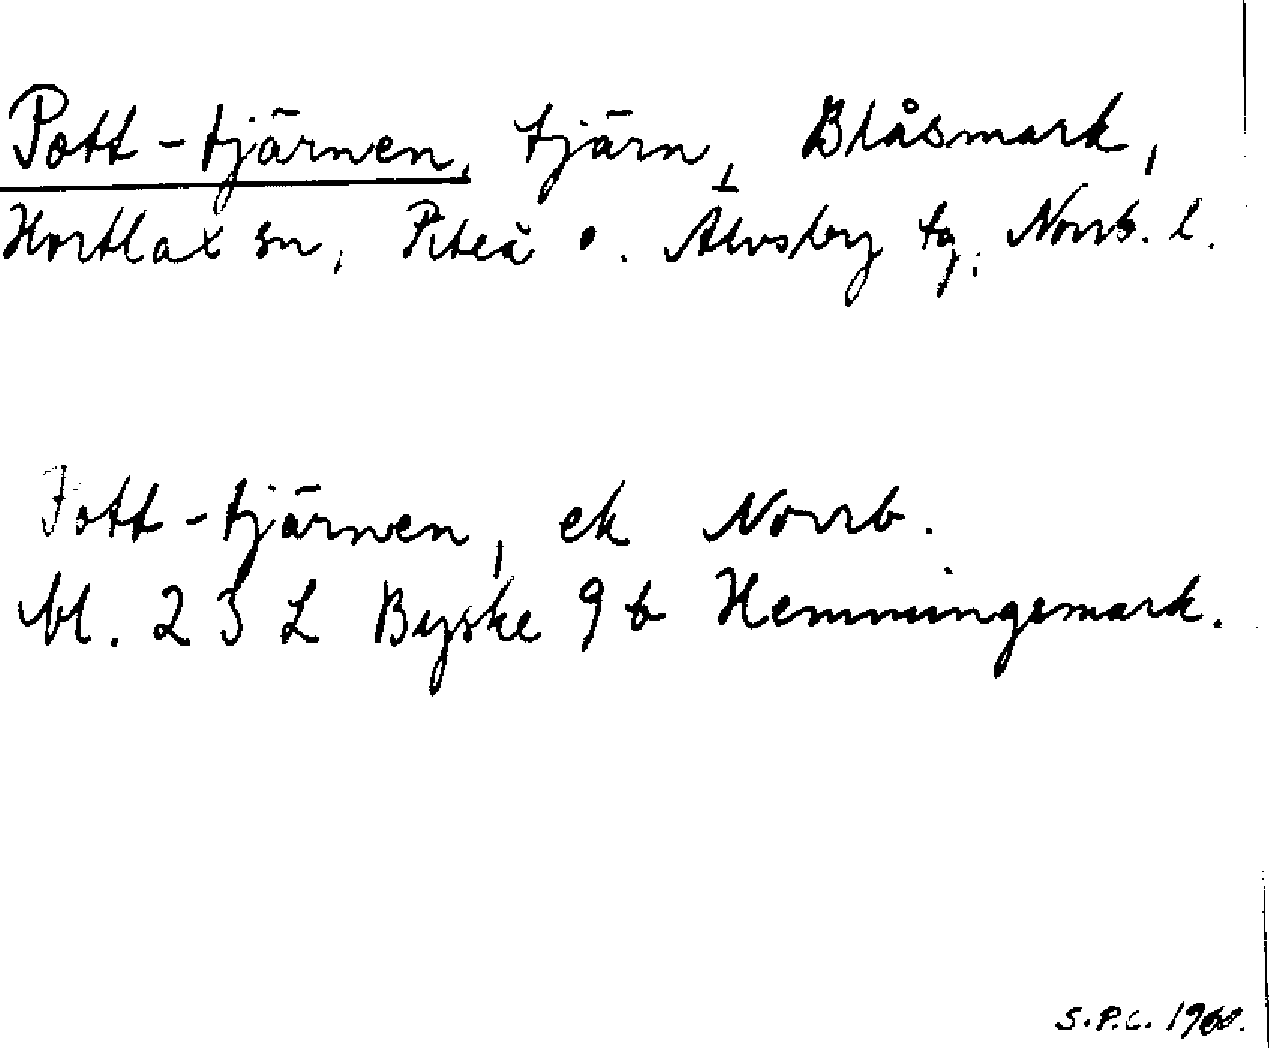 Pott-tjärnen, tjärn, Blåsmark,
Hortlax sn, Piteå o. Älvsby tg, Norrb. l.
Pott-tjärnen, ek Norrb.
bl. 23 L Byske 9 b Hemmingsmark.
S.P.C. 1960.